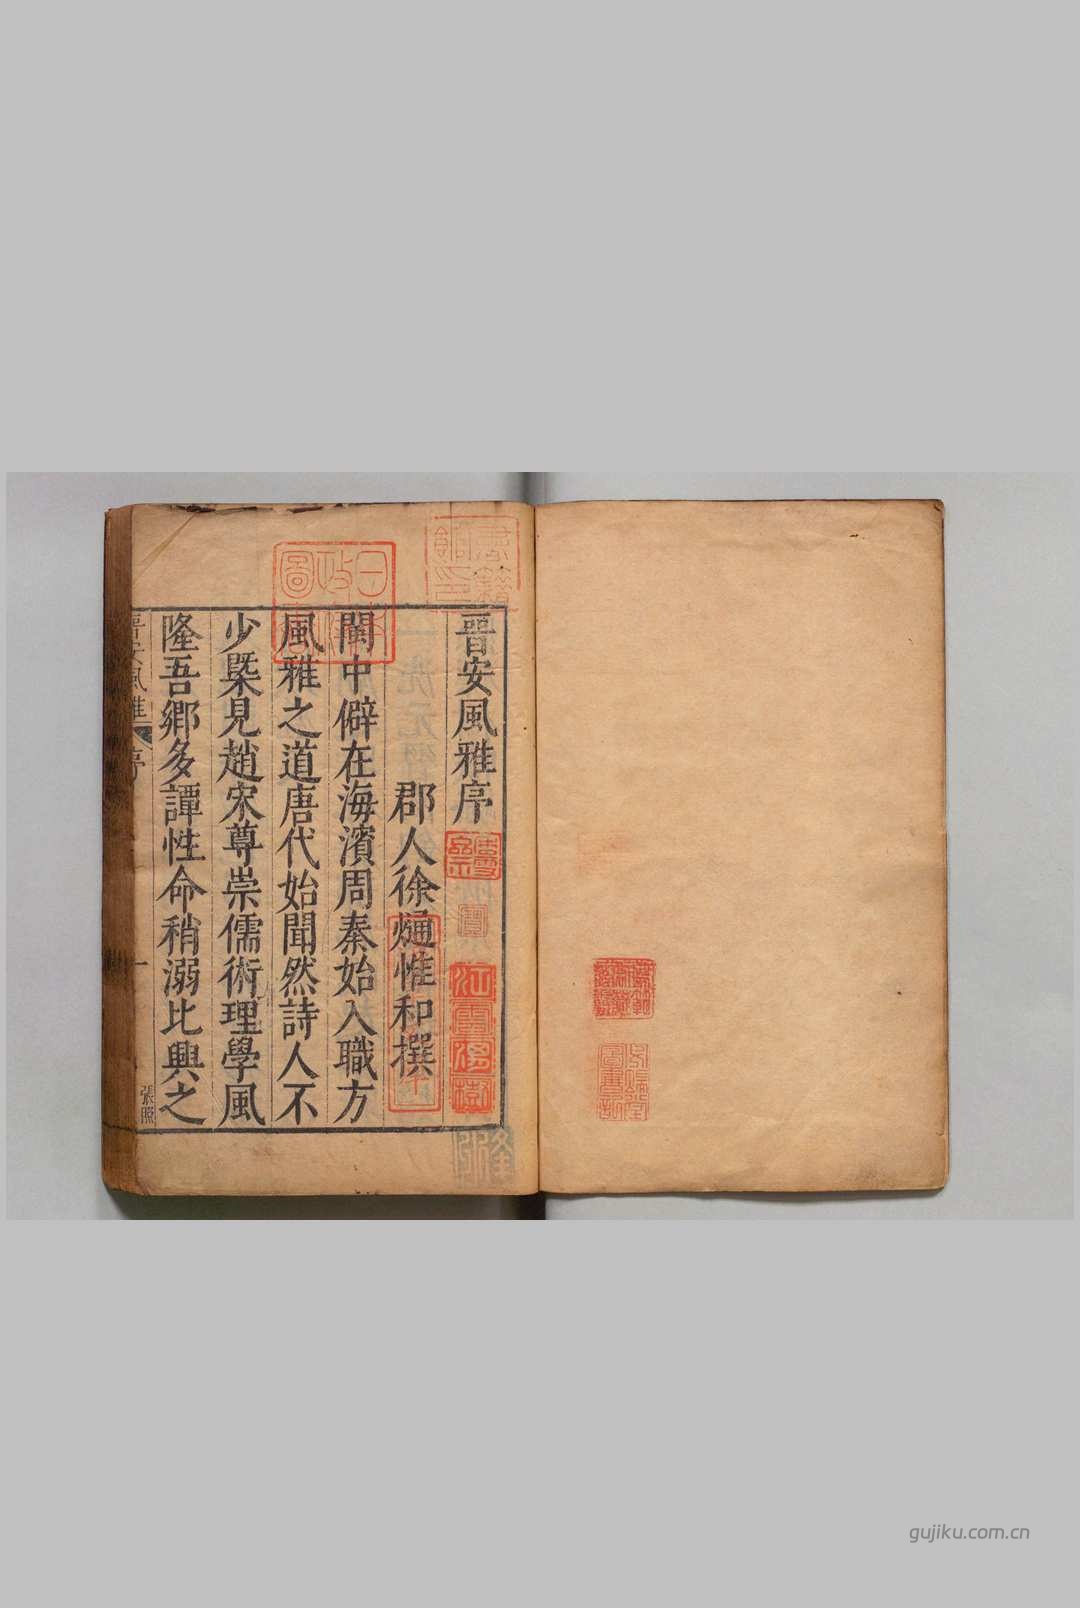 晉安風雅序
郡人徐𤊻惟和撰
閩中僻在海濱周秦始入職方
風雅之道唐代始聞然詩人不
少槩見趙宋尊崇儒術理學風
隆吾鄉多譚性命稍溺比興之
晉安風雅
序
一
張照
日本政府圖書
gujiku.com.cn